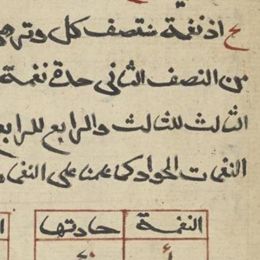 ح اذ نغمة منتصف كل وتر هي
من النصف الثاني حدة نغمة
الثالث للثالث والرابع للرابع
النغمات الحواد كما علمنا على النغما
النغمة حادتها ا
أ